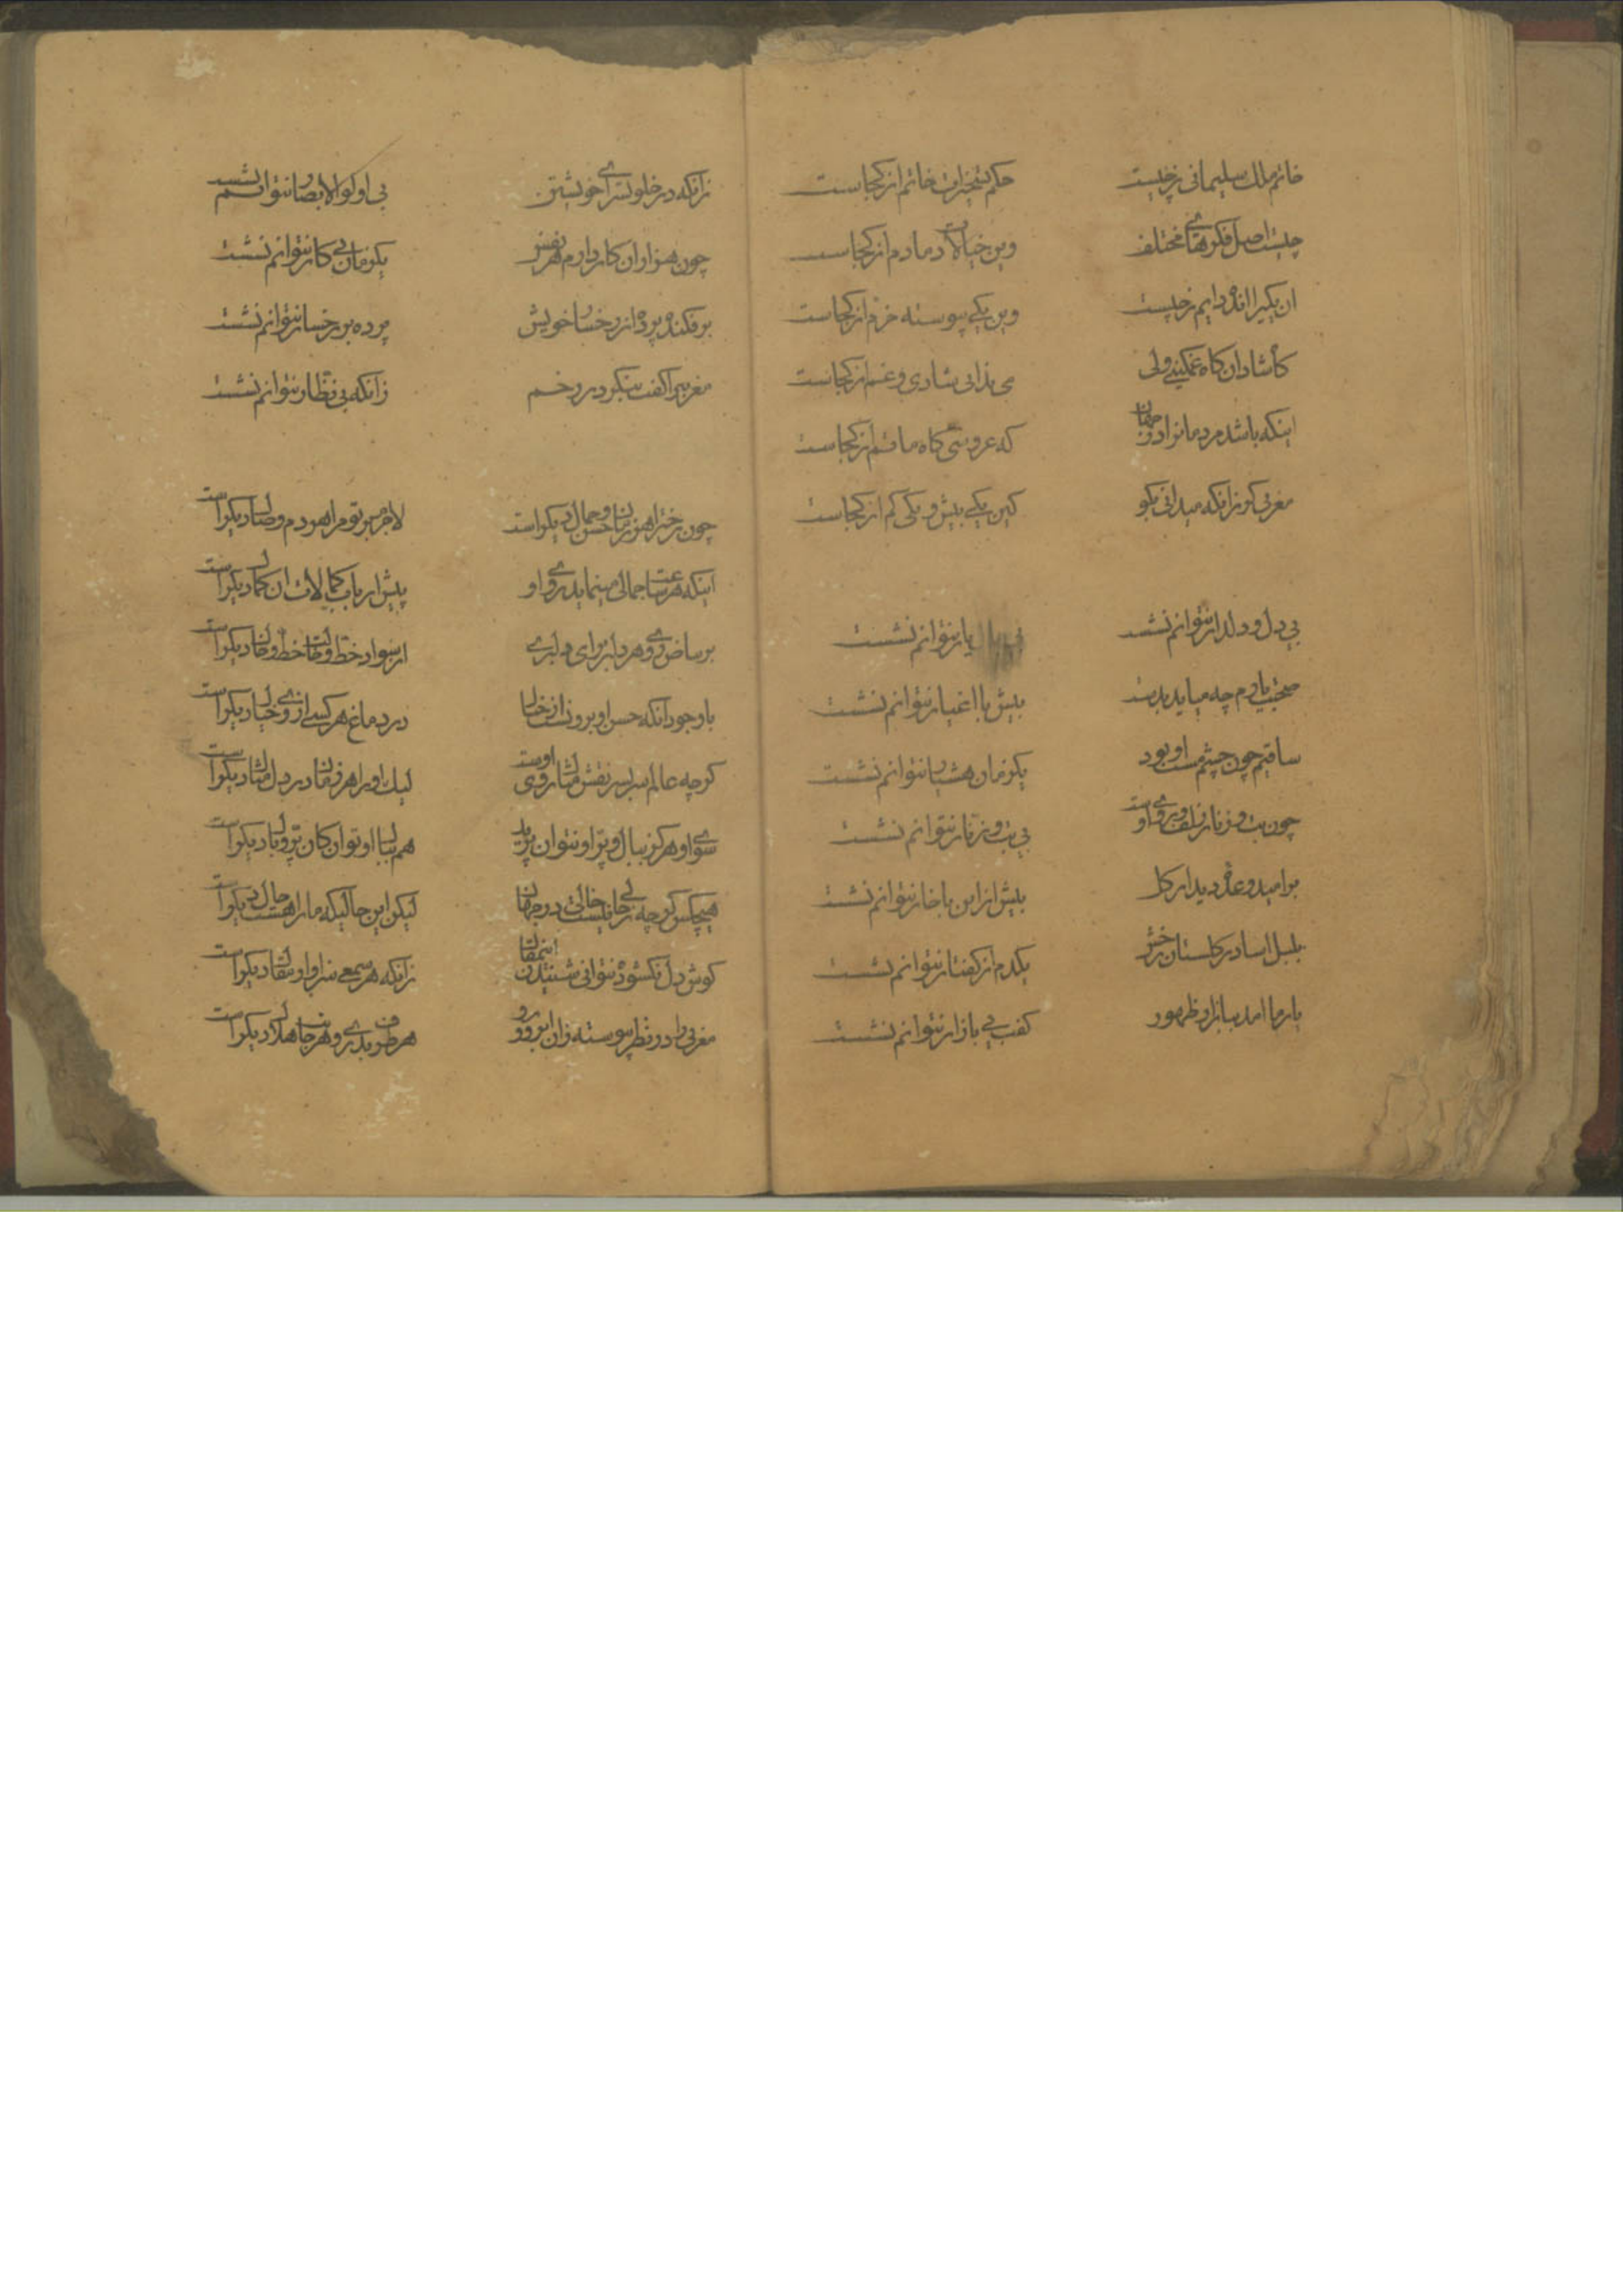 خاتم ملك سلیمانی ز چیست حکم تسخیرات خاتم از کجاست
چیست اصل فکرهای مختلف وین خیالات دمادم از کجاست
ان یکیرا انده دایم ز چیست وین یکی پیوسته خرم از کجاست
کاه شادان کاه غمکینی ولی می ندانی شادی و غم از کجاست
اینکه باشد مردمانرا در جهان که عروسی کاه ماتم از کجاست
مغربی کر زانکه میدانی بکو کین یکی بیش و یکی کم از کجاست
بی دل و دلدار نتوانم نشست بی یار نتوانم نشست
صحبت یارم چه میاید بدست بیش با اغیار نتوانم نشست
ساقیم چون چشم مست او بود یکزمان هشیار نتوانم نشست
چون بت و زنار زلف و روی اوست بی بت و زنار نتوانم نشست
بر امید وعده دیدار کل بیش از این با خار نتوانم نشست
بلبل اسا در کلستان رخش یکدم از کفتار نتوانم نشست
یار ما امد ببازار ظهور کفت بی بازار نتوانم نشست
زانکه در خلوتسرای خویشتن بی اولوالابصار نتوانم نشست
چون هزاران کار دارم هر نفس یکزمان بی کار نتوانم نشست
برفکنده پرده از رخسار خویش پرده بر رخسار نتوانم نشست
مغربی را کفت بنکر در رخم زانکه بی نظار نتوانم نشست
چون رخت را هر زمان حسن و جمال دیکر است لاجرم هر دم مرا با تو وصال دیکر است
اینکه هر ساعت جمالی مینماید روی او پیش ارباب کمالات ان کمال دیکر است
بر بیاض روی هر دلبر برای دلبری از سواد خط و خالت خط و خال دیکر است
با وجود آنکه حسن او برونست از خیال در دماغ هر کسی از وی خیال دیکر است
کرچه عالم سر بسر نقش مثال روی اوست لیك او را هر زمان در دل مثال دیکر است
سوی او هرکز ببال و پر او نتوان پرید هم ببال او توان کان پر و بال دیکر است
هیچکس کرچه ز حالی نیست خالی در جهان لیکن این حالیکه ما را هست حال دیکر است
کوش دل نکشوده نتوانی شنیدن این مقال زانکه هر سمعی سزاوار مقال دیکر است
مغربی را در نظر پیوسته زان ابرو و رو هر طرف بدری و هر جانب هلال دیکر است